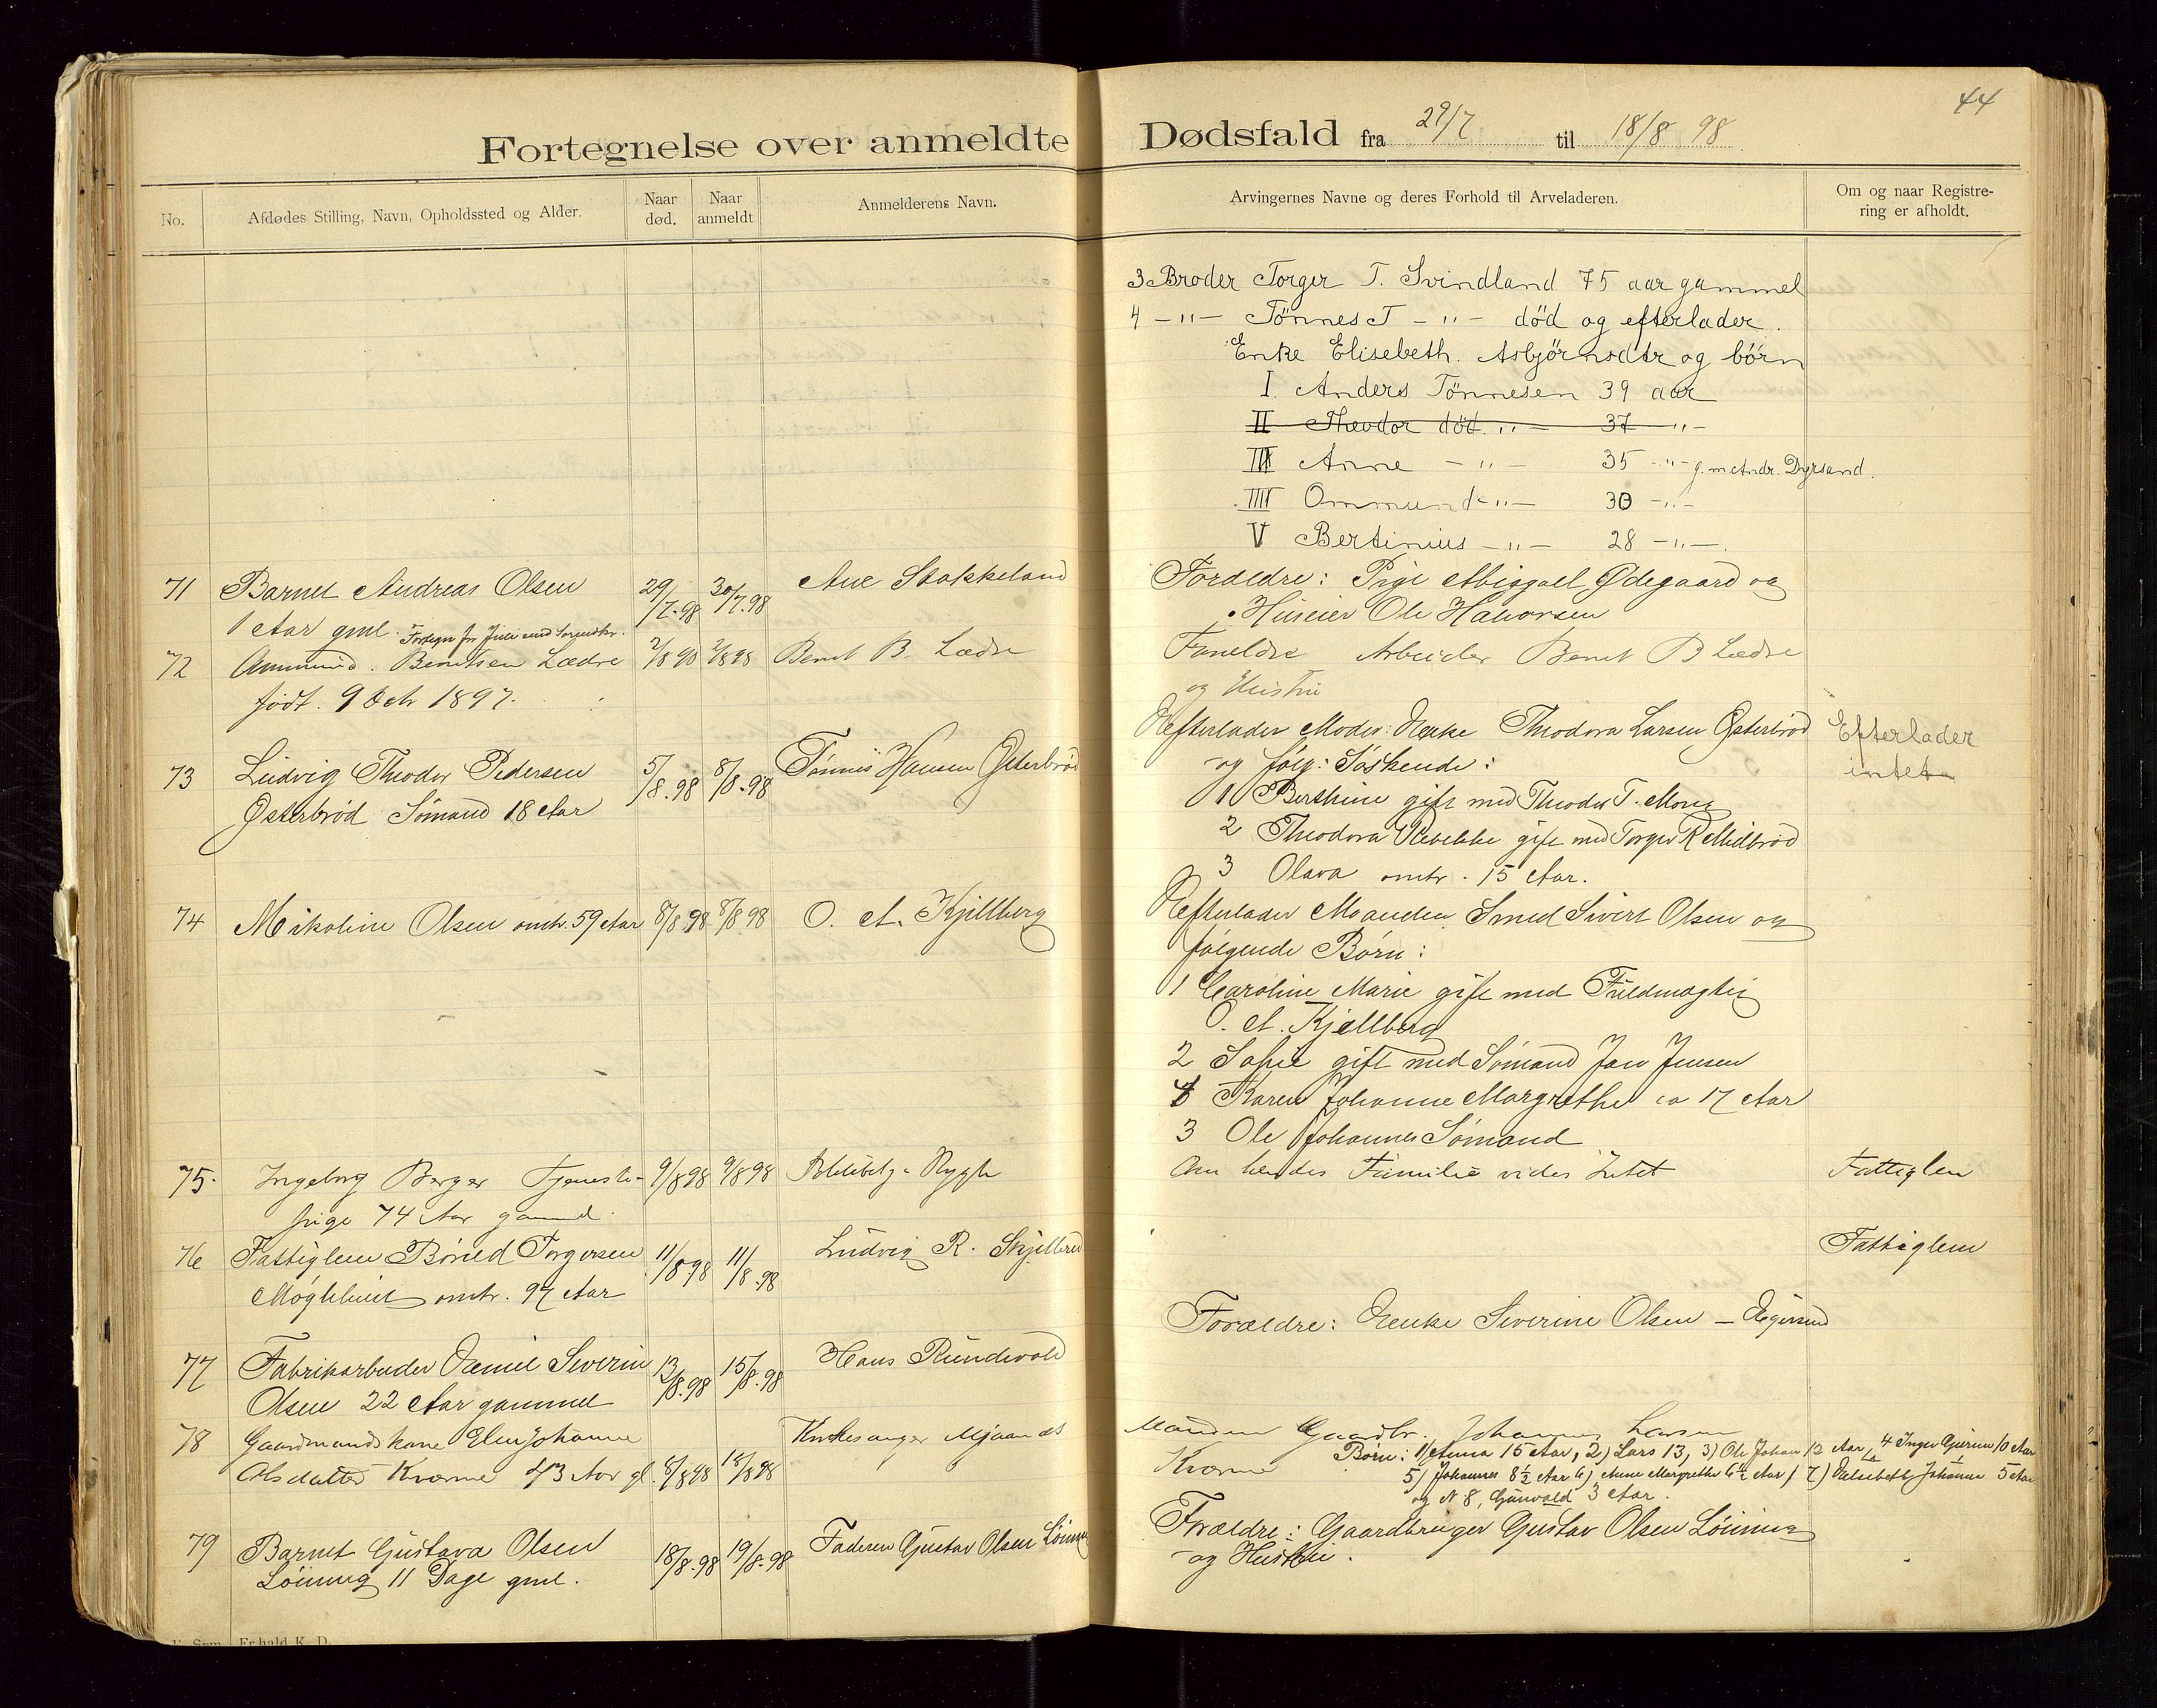 44
Fortegnelse over anmeldte Dødsfald fra 29/7 til 18/8 98
No.
Afdødes Stilling, Navn, Opholdssted og Alder.
Naar død.
Naar anmeldt
Anmelderens Navn.
Arvingernes Navne og deres Forhold til Arveladeren.
Om og naar Registre-
ring er afholdt.
3 Broder Torger T. Svindland 75 aar gammel
4 -"- Tönnes T -"- död og efterlader.
Enke Elisebeth. Asbjörnsdtr og börn
I. Anders Tönnesen 39 aar
II Theodor död. " - 37 "-
III Anne - " - 35 -"- g. m Andr. Dyrsand.
IIII Ommund -"- 30 -"-
V Bertinius -"- 28 -"-.
71 Barnet Andreas Olsen 29/7-98 30/7.98 Ane Stokkeland
1 Aar gml.
Forældre: Pige Abiggael Ødegaard og
Huseier Ole Halvorsen
72 Ammund. Berntsen Lædre 2/8 98 2/8 98 Bernt B. Lædre
født. 9 Octr 1897.
Forældre Arbeider Bernt B Lædre
og Hustru
73 Ludvig Theodor Pedersen 5/8.98 8/8.98 Tönnes Hansen Østerbrød
Østerbrød Sømand 18 Aar
Efterlader Moder: Enke Theodora Larsen Østerbrød
og følg: Søskende:
1 Berthine gift med Theodor T. Mong
2 Theodora Rebekke gift med Torger R Midbrød
3 Olava omtr. 15 Aar.
Efterlader
intet
74 Mikoline Olsen omtr. 59 Aar 8/8.98 8/8 98 O. A. Kjellberg
Efterlader Manden Smed Sivert Olsen og
følgende Børn:
1 Caroline Marie gift med Fuldmægtig
O. A. Kjellberg
2 Sofie gift med Sømand Jan Jensen
4 Karen Johanne Margrethe ca 17 Aar
3 Ole Johannes Sømand
75. Ingeborg Berger Tjeneste- 9/8 98 9/8 98 Politibetj. Rygh
pige 74 Aar gammel.
Om hendes Familie vides Intet
Fattiglem
76 Fattiglem Böruld Torgersen 11/8.98 11/8.98 Ludvig R. Skjelbred
Møglehuset omtr. 97 Aar
Fattiglem
77 Fabrikarbeider Emil Severin 13/8.98 15/8.98 Hans Rundevold
Olsen 22 Aar gammel
Forældre: Enke Severine Olsen - Egersund
78 Gaardmandskone Elen Johanne
Olsdatter Kvarme 43 Aar gl. 8/8 98 18/8 98 Kirkesanger Mjaanes
Manden Gaardbr. Johannes Larsen
Kvarme Børn: 1) Anna 15 Aar, 2) Lars 13, 3) Ole Johan 12 Aar, 4 Inger 10 Aar
5) Johannes 8½ Aar 6) Anne Margrethe 6½ Aar, 7) Elisebeth Johanne 5 Aar
og N 8, Gunvald 3 Aar.
79 Barnet Gustava Olsen 18/8.98 19/8.98 Faderen Gustav Olsen
Löining 11 Dage gml.
Forældre: Gaardbruger Gustav Olsen Löining
og Hustru.